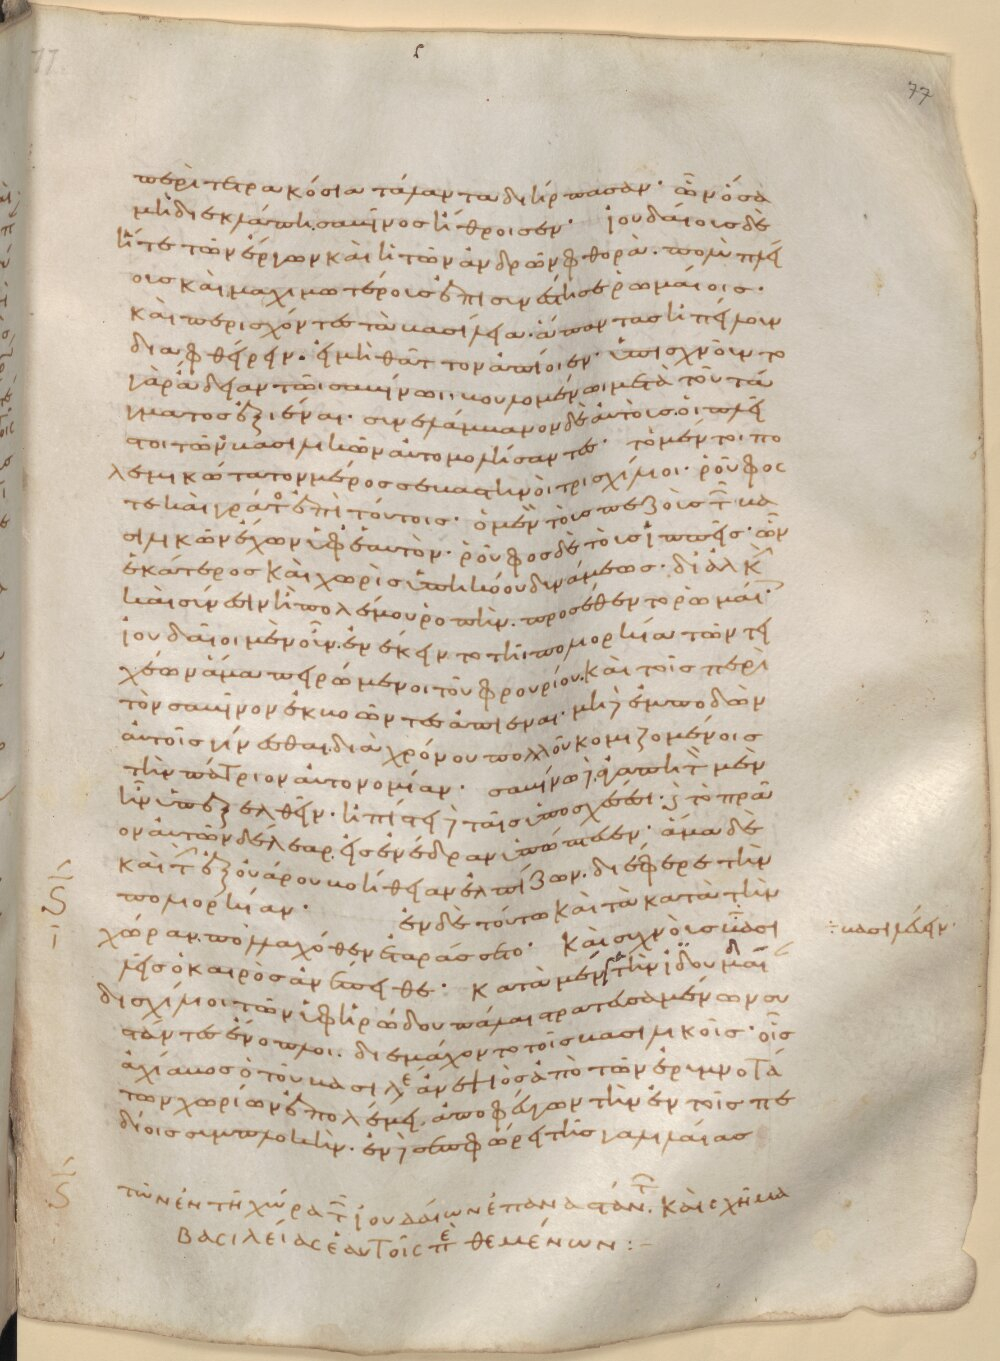 περὶ τετρακόσια τάλαντα διήρπασαν· ὧν ὅσα
μὴ διεκλάπη. σαβῖνος ἤθροισεν· ἰουδαίοις δὲ
ἥ τε τῶν ἔργων καὶ ἡ τῶν ἀνδρῶν φθορὰ. πολὺ πλεί
οις καὶ μαχιμωτέροις ἐπισυνέστησε ῥωμαίοις.
καὶ περισχόντες τὰ βασίλεια. ἅπαντας ἠπείλουν
διαφθείρειν. εἰ μὴ θᾶττον ἀπίοιεν· ὑπισχνοῦντο
γὰρ ἄδειαν τῶι σαβίνωι. βουλομένωι μετὰ τοῦ τά
γματος ἐξιέναι. συνελάμβανον δὲ αὐτοῖς οἱ πλεῖ
στοι τῶν βασιλικῶν αὐτομολήσαντες· τὸ μέντοι πο
λεμικώτατον μέρος σεβαστηνοὶ τρισχίλιοι. ῥοῦφος
τε καὶ γράτος ἐπὶ τούτοις. ὁ μὲν τοὺς πεζοὺς τ̑ βα
σιλικῶν ἔχων ὑφ' ἑαυτὸν. ῥοῦφος δὲ τοὺς ἱππεῖς. ὧν
ἑκάτερος καὶ χωρὶς ὑπηκόου δυνάμεως. δι ἀλκ̑
καὶ σύνεσιν ἢ πολέμου ῥοπὴν. προσέθεντο ῥωμαί·
ἰουδαῖοι μὲν οὖν. ἐνέκειντο τῆι πολιορκίαι τῶν τει
χέων ἅμα πειρώμενοι τοῦ φρουρίου. καὶ τοῖς περὶ
τὸν σαβῖνον ἐκβοῶντες ἀπιέναι. μὴ δ' ἐμποδὼν
αὐτοῖς γίνεσθαι. διὰ χρόνου πολλοῦ κομιζομένοις
τὴν πάτριον αὐτονομίαν. σαβίνωι δ' ἀγαπητὸν μὲν
ἦν ὑπεξελθεῖν. ἠπίστει δὲ ταῖς ὑποσχέσεσι. καὶ τὸ πρᾶ
ον αὐτῶν δέλεαρ εἰς ἐνέδραν ὑπώπτευεν· ἅμα δὲ
καὶ τ̑ ἐξ οὐάρου βοήθειαν ἐλπίζων. διέφερε τὴν
πολιορκίαν· ἐν δὲ τούτω καὶ τὰ κατὰ τὴν
χώραν. πολλαχόθεν ἐταράσσετο· καὶ συχνοὺς βασι
λεῖς ὁ καιρὸς ἀνέπειθε. κατὰ μέν γε τὴν ἰδουμαί
δισχίλιοι τῶν ὑφ' ἡρώδου πάλαι στρατευσαμένων συ
στάντες ἔνοπλοι. διεμάχοντο τοῖς βασιλικοῖς. οἷς
ἀχίαβος ὁ τοῦ βασιλέ ἀνεψιὸς ἀπὸ τῶν ἐρυμνοτά
των χωρίων ἐπολέμει. ἀποφεύγων τὴν ἐν τοῖς πε
δίοις συμπλοκὴν. ἐν δὲ σεπφώρει τῆς γαλιλαίας
÷ βασιλειᾶν.
τῶν ἐν τῆ χώρα τ̑ ἰουδαίων ἐπαναστάντ̑. καὶ σχῆμα
βασιλείας ἑαυτοῖς περιθεμένων :–
77